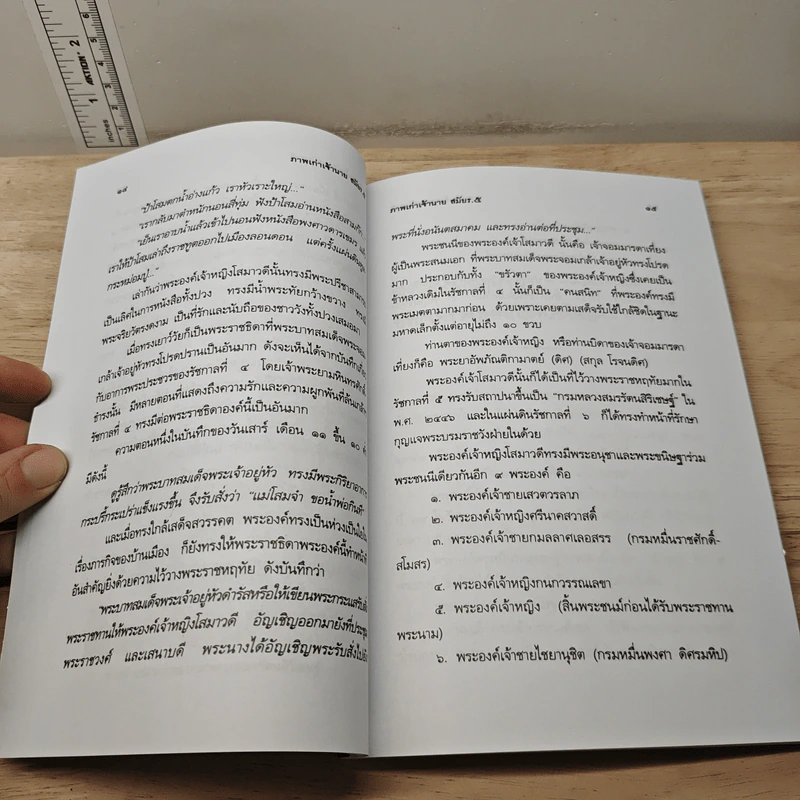 inches
1
2
3
4
5
6
AKTION
ภาพเก่าเจ้านาย สมัย
๑๘
"ป้าโสมตกน้ำอ่างแก้ว เราหัวเราะใหญ่..."
"เรากลับมาตำหนักนอนสี่ทุ่ม ฟังป้าโสมอ่านหนังสือสามก๊ก
"เย็นเราอาบน้ำแล้วเข้าไปนอนฟังหนังสือพงศาวดารเขมร
เราให้ป้าโสมเล่าถึงราชทูตออกไปเมืองลอนดอน แต่ครั้งแผ่นดิน
กระหม่อมอยู่..."
เล่ากันว่าพระองค์เจ้าหญิงโสมาวดีนั้นทรงมีพระปรีชาสามารถ
เป็นเลิศในการหนังสือทั้งปวง ทรงมีน้ำพระทัยกว้างขวาง
พระจริยวัตรงดงาม เป็นที่รักและนับถือของชาววังทั้งปวงเสมอมา
เมื่อทรงเยาว์วัยก็เป็นพระราชธิดาที่พระบาทสมเด็จพระจอม
เกล้าเจ้าอยู่หัวทรงโปรดปรานเป็นอันมาก ดังจะเห็นได้จากบันทึก
กับอาการพระประชวรของรัชกาลที่ ๔ โดยเจ้าพระยามหินทรศักดิ์
ธำรงนั้น มีหลายตอนที่แสดงถึงความรักและความผูกพันที่ล้นเกล้า
รัชกาลที่ ๔ ทรงมีต่อพระราชธิดาองค์นี้เป็นอันมาก
ความตอนหนึ่งในบันทึกของวันเสาร์ เดือน ๑๑ ขึ้น ๑๐ ค่ำ
มีดังนี้
ดูรู้สึกว่าพระบาทสมเด็จพระเจ้าอยู่หัว ทรงมีพระกิริยาอาการ
กระปรี้กระเปร่าแข็งแรงขึ้น จึงรับสั่งว่า "แม่โสมจ๋า ขอน้ำพ่อกินที"
และเมื่อทรงใกล้เสด็จสวรรคต พระองค์ทรงเป็นห่วงเป็นใย
เรื่องภารกิจของบ้านเมือง ก็ยังทรงให้พระราชธิดาพระองค์นี้ทำหน้าที่
อันสำคัญยิ่งด้วยความไว้วางพระราชหฤทัย ดังบันทึกว่า
"พระบาทสมเด็จพระเจ้าอยู่หัวดำรัสหรือให้เขียนพระกระแสรับสั่ง
พระราชทานให้พระองค์เจ้าหญิงโสมาวดี อัญเชิญออกมายังที่ประชุม
พระราชวงศ์ และเสนาบดี พระนางได้อัญเชิญพระรับสั่งไป
ภาพเก่าเจ้านาย สมัยร.๕
๑๙
พระที่นั่งอนันตสมาคม และทรงอ่านต่อที่ประชุม..."
พระชนนีของพระองค์เจ้าโสมาวดี นั้นคือ เจ้าจอมมารดาเที่ยง
ผู้เป็นพระสนมเอก ที่พระบาทสมเด็จพระจอมเกล้าเจ้าอยู่หัวทรงโปรด
มาก ประกอบกับทั้ง "ขรัวตา" ของพระองค์เจ้าหญิงซึ่งเคยเป็น
ข้าหลวงเดิมในรัชกาลที่ ๔ นั้นก็เป็น "คนสนิท" ที่พระองค์ทรงมี
พระเมตตามากมาก่อน ด้วยเพราะเคยตามเสด็จรับใช้ใกล้ชิดในฐานะ
มหาดเล็กตั้งแต่อายุไม่ถึง ๑๐ ขวบ
ท่านตาของพระองค์เจ้าหญิง หรือท่านบิดาของเจ้าจอมมารดา
เที่ยงก็คือ พระยาอัพภัณติกามาตย์ (ดิศ) (สกุล โรจนดิศ)
พระองค์เจ้าโสมาวดีนั้นก็ได้เป็นที่ไว้วางพระราชหฤทัยมากใน
รัชกาลที่ ๕ ทรงรับสถาปนาขึ้นเป็น "กรมหลวงสมรรัตนสิริเชษฐ์" ใน
พ.ศ. ๒๔๔๖ และในแผ่นดินรัชกาลที่ ๖ ก็ได้ทรงทำหน้าที่รักษา
กุญแจพระบรมราชวังฝ่ายในด้วย
พระองค์เจ้าหญิงโสมาวดีทรงมีพระอนุชาและพระขนิษฐาร่วม
พระชนนีเดียวกันอีก ๙ พระองค์ คือ
๑. พระองค์เจ้าชายเสวตวรลาภ
๒. พระองค์เจ้าหญิงศรีนาคสวาสดิ์
๓. พระองค์เจ้าชายกมลลาศเลอสรร (กรมหมื่นราชศักดิ์-
สโมสร)
๔. พระองค์เจ้าหญิงกนกวรรณเลขา
๕. พระองค์เจ้าหญิง (สิ้นพระชนม์ก่อนได้รับพระราชทาน
พระนาม)
๖. พระองค์เจ้าชายไชยานุชิต (กรมหมื่นพงศา ดิศรมหิป)